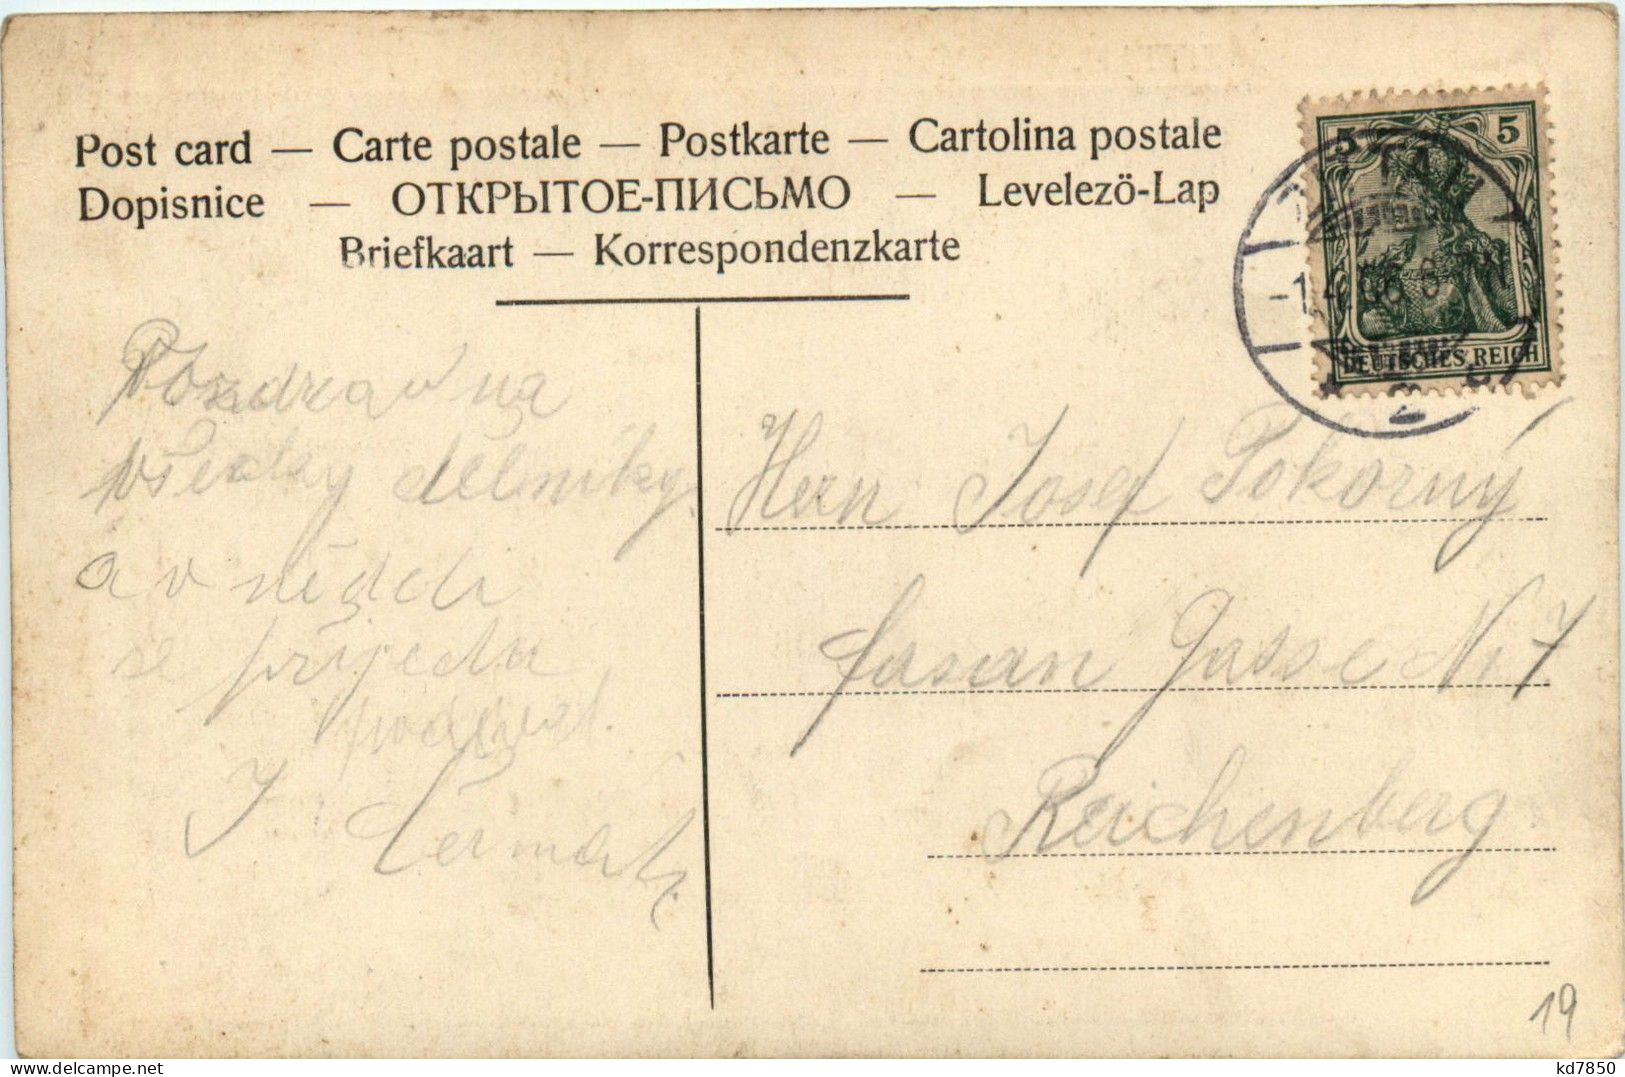 Post card — Carte postale — Postkarte — Cartolina postale
Dopisnice — ОТКРЫТОЕ-ПИСЬМО — Levelezö-Lap
Briefkaart — Korrespondenzkarte
5 5
DEUTSCHES REICH
Pozdrav na
všecky dělníky
a v neděli
se přijedu
podívat.
J. Čermák
Herrn Josef Pokorný
fasan Gasse Nr 7
Reichenberg
19
delcampe.net
kd7850